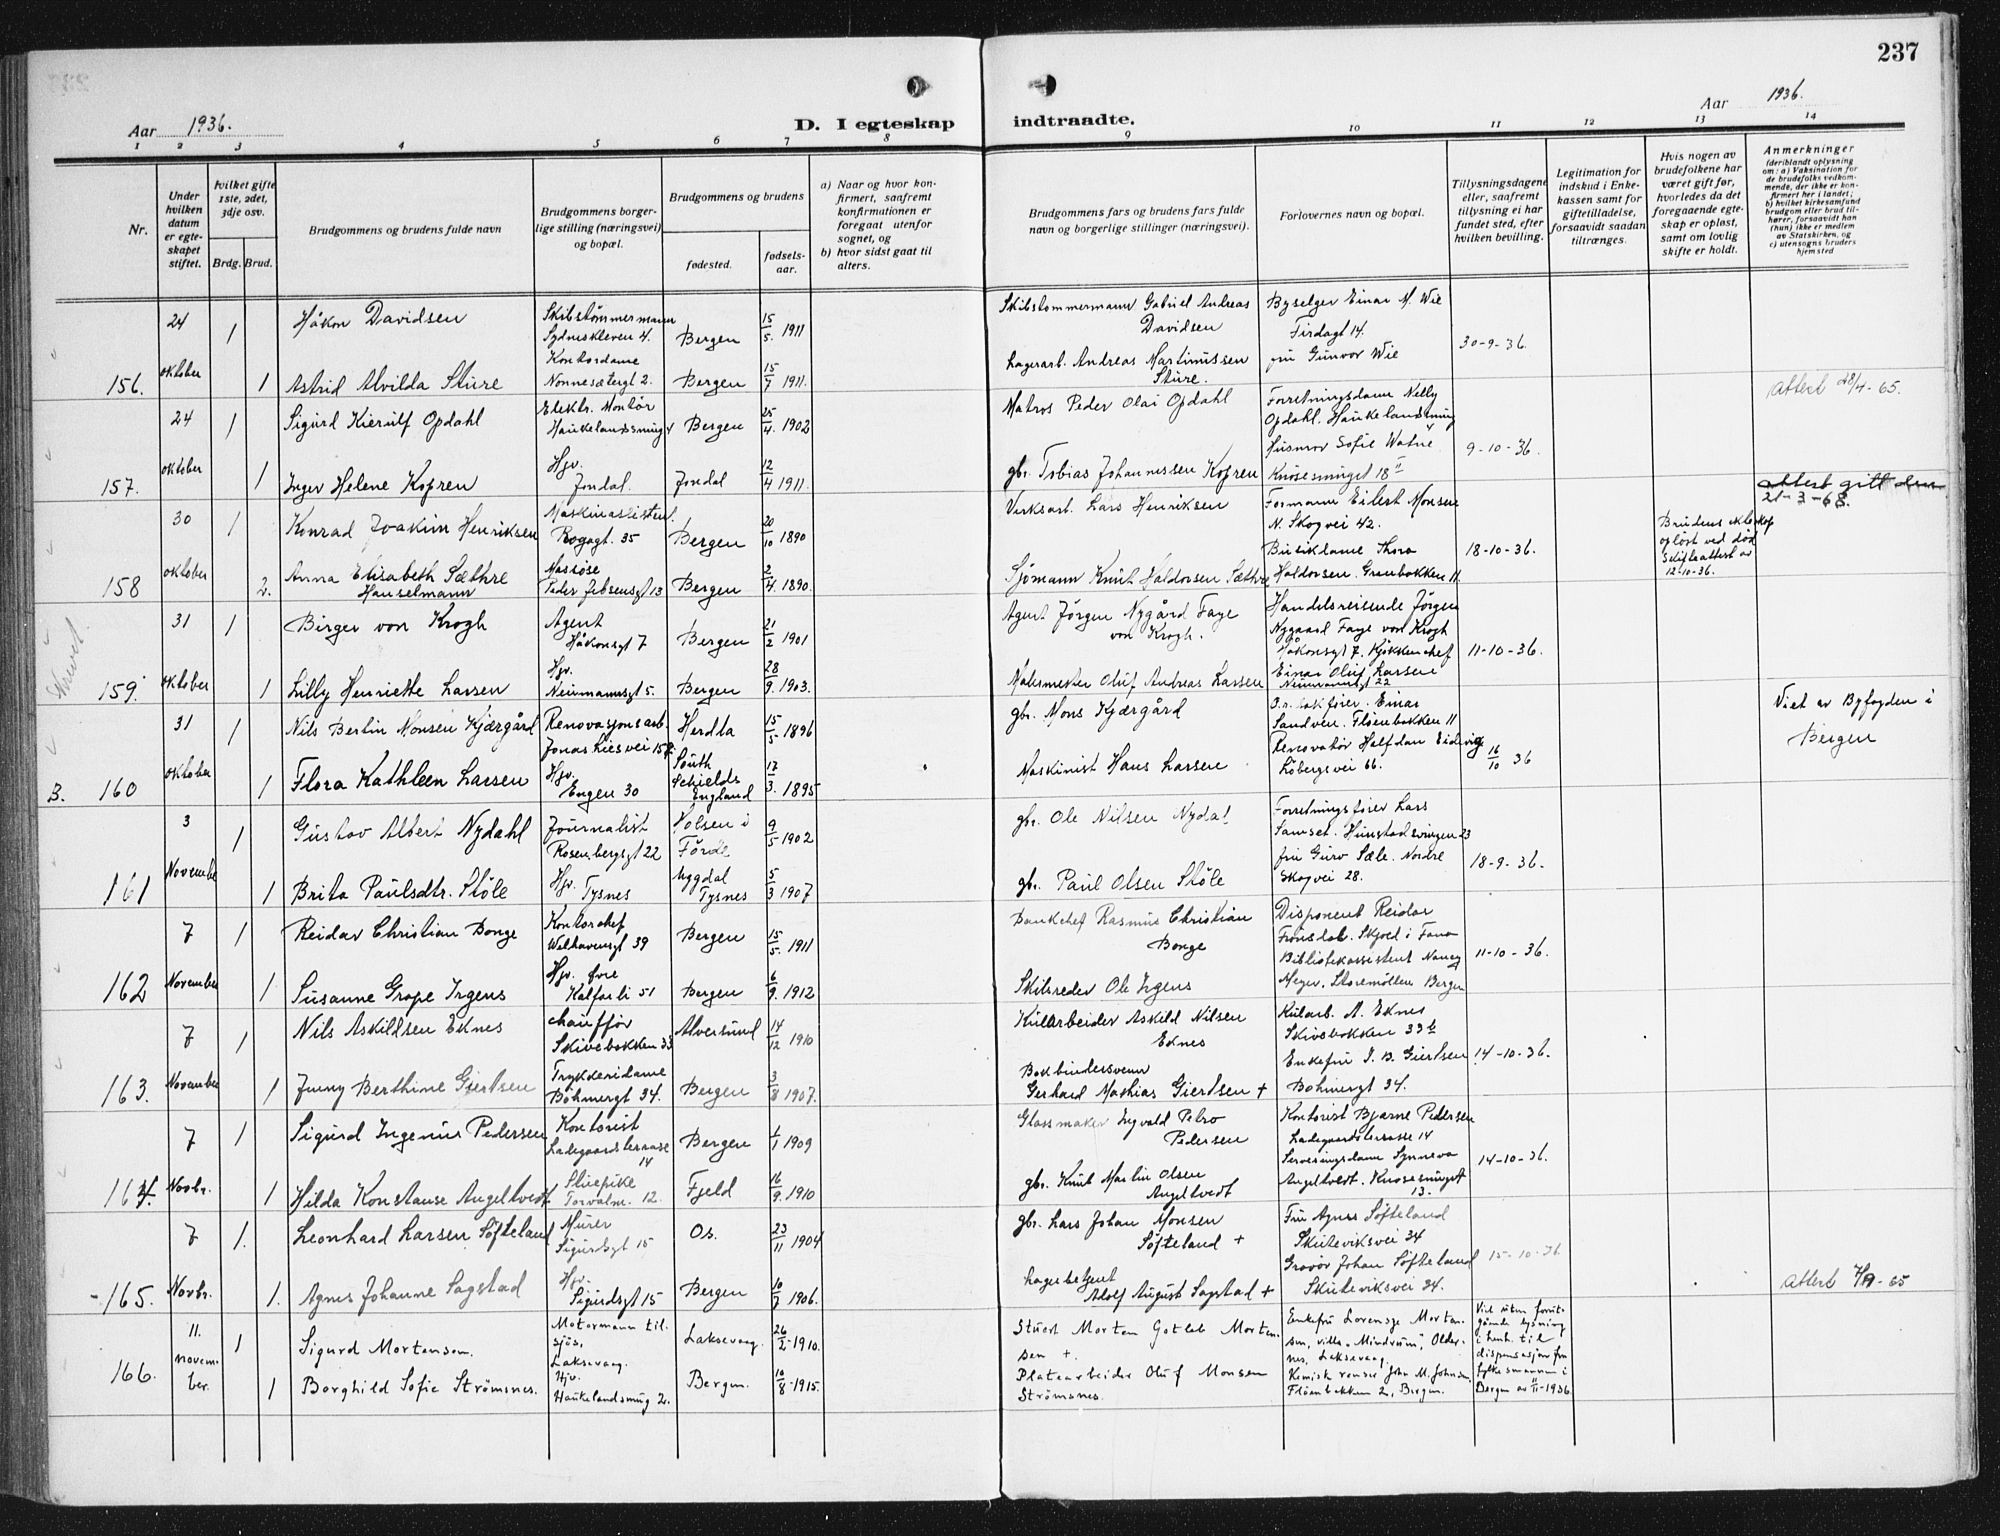 237
Aar 1936.
D. I egteskap indtraadte.
Aar 1936.
1 2 3 4 5 6 7 8 9 10 11 12 13 14
Nr.
Under hvilken datum er egteskapet stiftet.
hvilket gifte 1ste, 2det, 3dje osv.
Brdg. Brud.
Brudgommens og brudens fulde navn
Brudgommens borgerlige stilling (næringsvei) og bopæl.
Brudgommens og brudens
fødested.
fødselsaar.
a) Naar og hvor konfirmert, saafremt konfirmationen er foregaat utenfor sognet, og
b) hvor sidst gaat til alters.
Brudgommens fars og brudens fars fulde navn og borgerlige stillinger (næringsvei).
Forlovernes navn og bopæl.
Tillysningsdagene eller, saafremt tillysning ei har fundet sted, efter hvilken bevilling.
Legitimation for indskud i Enkekassen samt for giftetilladelse, forsaavidt saadan tiltrænges.
Hvis nogen av brudefolkene har været gift før, hvorledes da det foregaaende egteskap er opløst, samt om lovlig skifte er holdt.
Anmerkninger (deriblandt oplysning om: a) Vaksination for de brudefolks vedkommende, der ikke er konfirmert her i landet; b) hvilket kirkesamfund brudgom eller brud tilhører, forsaavidt han (hun) ikke er medlem av Statskirken, og c) utensogns bruders hjemsted
156. 24 oktober
1 Håkon Davidsen Skibstømmermann Sydneskleven 4. Bergen 15/5 1911 Skibstømmermann Gabriel Andreas Davidsen Byselger Einar M. Wie Firdagt 14. 30-9-36.
1 Astrid Alvilda Sture Kontordame Nonnesætergt 2. Bergen 15/7 1911. Lagerarb. Andreas Martinussen Sture. fru Gunvor Wie Attest 28/4-65.
157. 24 oktober
1 Sigurd Kierulf Opdahl Elektr. Montør Haukelandssmug 4 Bergen 25/4. 1902 Matros Peder Olai Opdahl Forretningsdame Nelly Opdahl. Haukelandsmug 4 9-10-36.
1 Inger Helene Kopren Hjv. Jondal. Jondal 12/4 1911. gbr. Tobias Johannessen Kopren Husmor Sofie Watne Knøsesmuget 18 II
Attest gitt den 21-3-68.
158 30 oktober
1 Konrad Joakim Henriksen Maskinassistent. Rogagt. 35 Bergen 20/10 1890 Verksarb. Lars Henriksen Formann Eilert Monsen N. Skogvei 42. 18-10-36.
2. Anna Elisabeth Sæthre Hanselmann Massøse Peder Jebsensgt 13 Bergen 2/4. 1890. Sjömann Knut Haldorsen Sæthre Butikdame Thora Haldorsen. Granbakken 11.
Brudens ekteskap opløst ved død Skifteattest av 12-10-36.
159. 31 oktober
1 Birger von Krogh Agent Håkonsgt 7 Bergen 21/2 1901 Agent Jørgen Nygård Faye von Krogh. Handelsreisende Jørgen Nygaard Faye von Krogh Håkonsgt 7. 11-10-36.
1 Lilly Henriette Larsen Hjv. Neumannsgt 5. Bergen 28/9. 1903. Malermester Oluf Andreas Larsen Kjøkkenchef Einar Oluf Larsen Neumannsgt 22
3. 160 31 oktober
1 Nils Bertin Monsen Kjærgård Renovasjonsarb. Jonas Liesvei 15 Herdla 15/5. 1896 gbr. Mons Kjærgård Einar Sandven. Fløenbakken 11 16/10 36 Viet av Byfogden i Bergen
1 Flora Kathleen Larsen Hjv. Engen 30 South Schields England 17/3. 1895 Maskinist Hans Larsen Renovatør Halfdan Eidevig Løbergsvei 66.
161 3 November
1 Gustav Albert Nydahl Journalist Rosenbergsgt 22 Holsen i Førde 9/5 1902 gbr. Ole Nilsen Nydal Forretningsfører Lars Samset. Hunstadsvingen 23 18-9-36.
1 Brita Paulsdtr. Støle Hjv. Tysnes Uggdal Tysnes 5/3 1907 gbr. Paul Olsen Støle fru Guro Sæle. Nordre Skogvei 28.
162 7 November
1 Reidar Christian Bonge Kontorchef Welhavensgt 39 Bergen 15/5. 1911 Bankchef Rasmus Christian Bonge Disponent Reidar Fronsdal. Skjold i Fana 11-10-36.
1 Susanne Grope Irgens Hjv. Øvre Kalfarli 51 Bergen 6/9. 1912 Skibsreder Ole Irgens Bibliotekassistent Nancy Meyer. Storemøllen Bergen
163. 7 November
1 Nils Askildsen Eknes chauffør Skivebakken 33 Alversund 14/12 1910 Kularbeider Askild Nilsen Eknes Kularb. A. Eknes Skivebakken 33 b 14-10-36.
1 Jenny Berthine Giertsen Trykkeridame Bøhmergt 34. Bergen 3/8 1907. Bokbindersvenn Gerhard Mathias Giertsen + Enkefru J. B. Giertsen Bøhmergt 34.
164. 7 Novbr.
1 Sigurd Ingenius Pedersen Kontorist Ladegaardsterrasse 14 Bergen 1/1 1909 Glassmaker Ingvald Petro Pedersen Kontorist Bjarne Pedersen Ladegaardsterrasse 14 14-10-36.
1 Hilda Konstanse Angeltvedt Stuepike Torvalm. 12. Fjeld 16/9. 1910 gbr. Knut Martin Olsen Angeltvedt Serveringsdame Synneva Angeltvedt. Knøsesmuget 13.
165. 7 Novbr.
1. Leonhard Larsen Søfteland Murer Sigurdsgt 15 Os. 23/11 1904 gbr. Lars Johan Monsen Søfteland + Fru Agnes Søfteland Skuteviksvei 34 15-10-36
1. Agnes Johanne Sagstad Hjv. Sigurdsgt 15 Bergen 10/7 1906. Lagerbetjent Adolf August Sagstad + Gravør Johan Søfteland Skuteviksvei 34.
166. 11. november.
1 Sigurd Mortensen. Motormann til sjøs, Laksevaag. Laksevaag 26/2-1910. Stuert Morten Gotleb Mortensen +. Enkefru Lorensze Mortensen, villa "Mindrum", Oldernes, Laksevaag. Viet uten forutgående lysning i henh. til dispensasjon fra fylkesmannen i Bergen av 11-1936.
1 Borghild Sofie Strömsnes. Hjv. Haukelandsmug 2. Bergen. 10/8-1915. Platearbeider Oluf Monsen Strömsnes. Kemisk renser John M. Johnsen, Fløenbakken 2, Bergen.